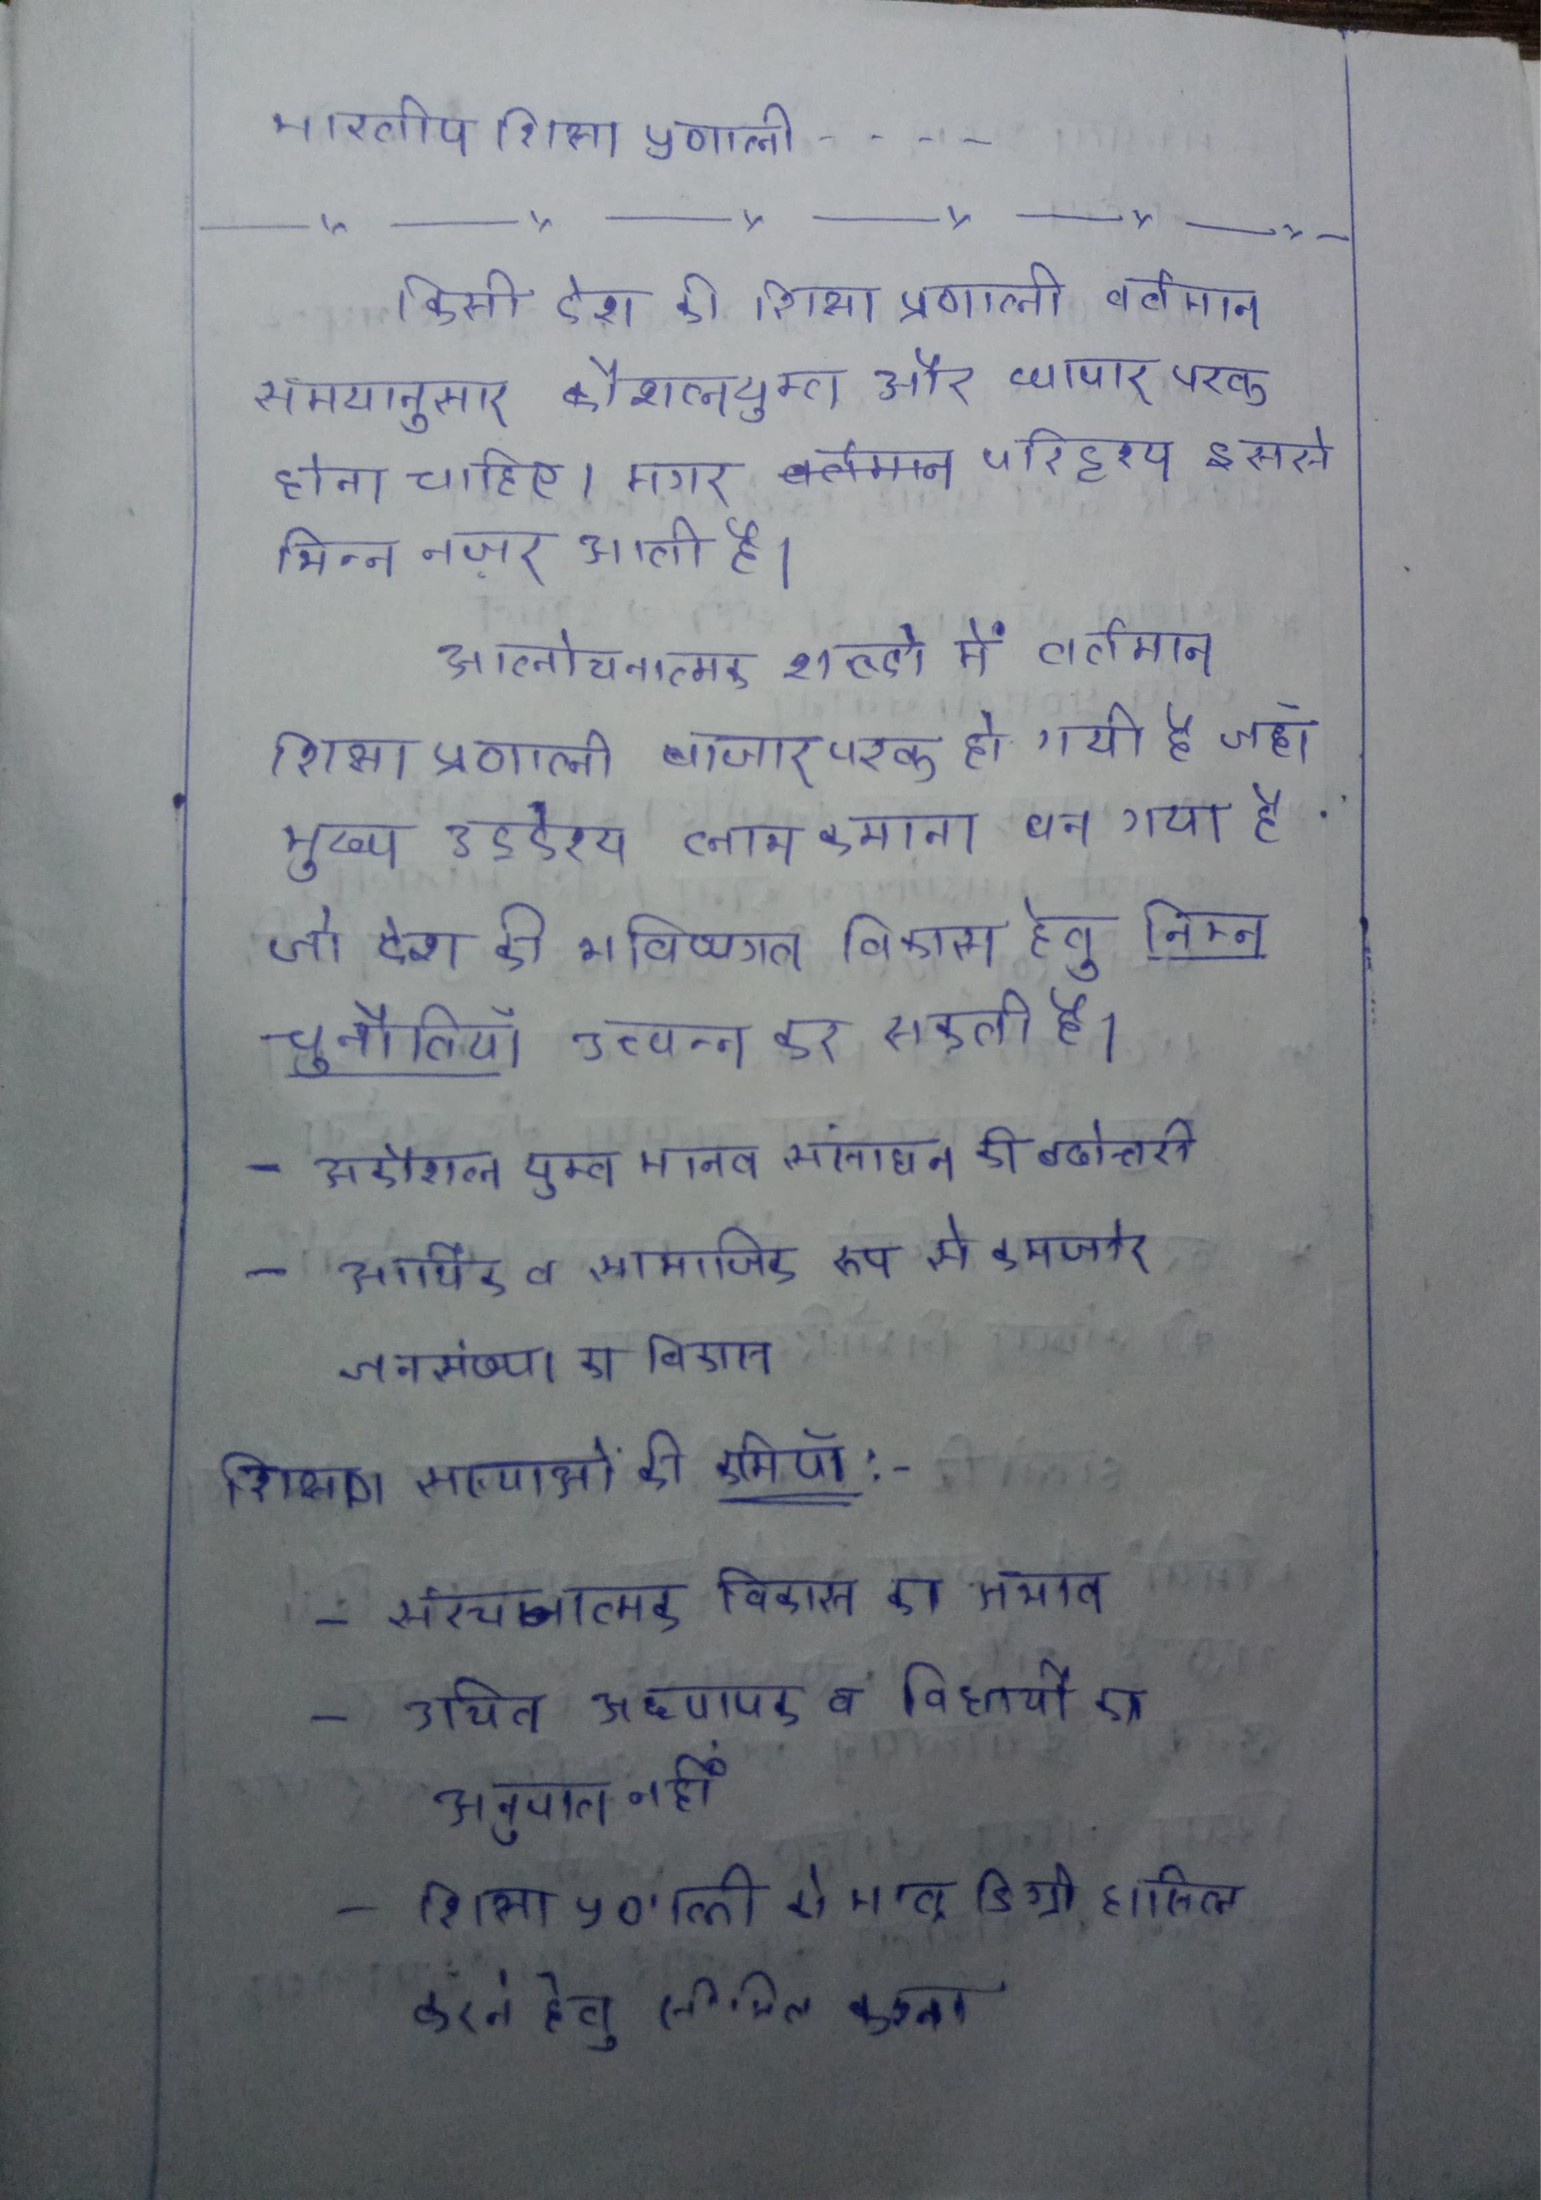 भारतीय शिक्षा प्रणाली - - - -
किसी देश की शिक्षा प्रणाली वर्तमान
समयानुसार कौशलयुक्त और व्यापार परक
होना चाहिए। मगर वर्तमान परिदृश्य इससे
भिन्न नज़र आती है।
आलोचनात्मक शब्दो में वर्तमान
शिक्षा प्रणाली बाजार परक हो गयी है जहाँ
मुख्य उद्देश्य लाभ कमाना बन गया है
जो देश की भविष्यगत विकास हेतु निम्न
चुनौतियाँ उत्पन्न कर सकती है।
- अकौशल युक्त मानव संसाधन की बढोत्तरी
- आर्थिक व सामाजिक रूप से कमजोर
जनसंख्या का विकास
शिक्षण संस्थाओं की कमियाँ :-
- संरचनात्मक विकास का अभाव
- उचित अध्यापक व विद्यार्थी का
अनुपात नहीं
- शिक्षा प्रणाली को मात्र डिग्री हासिल
करने हेतु सीमित करना